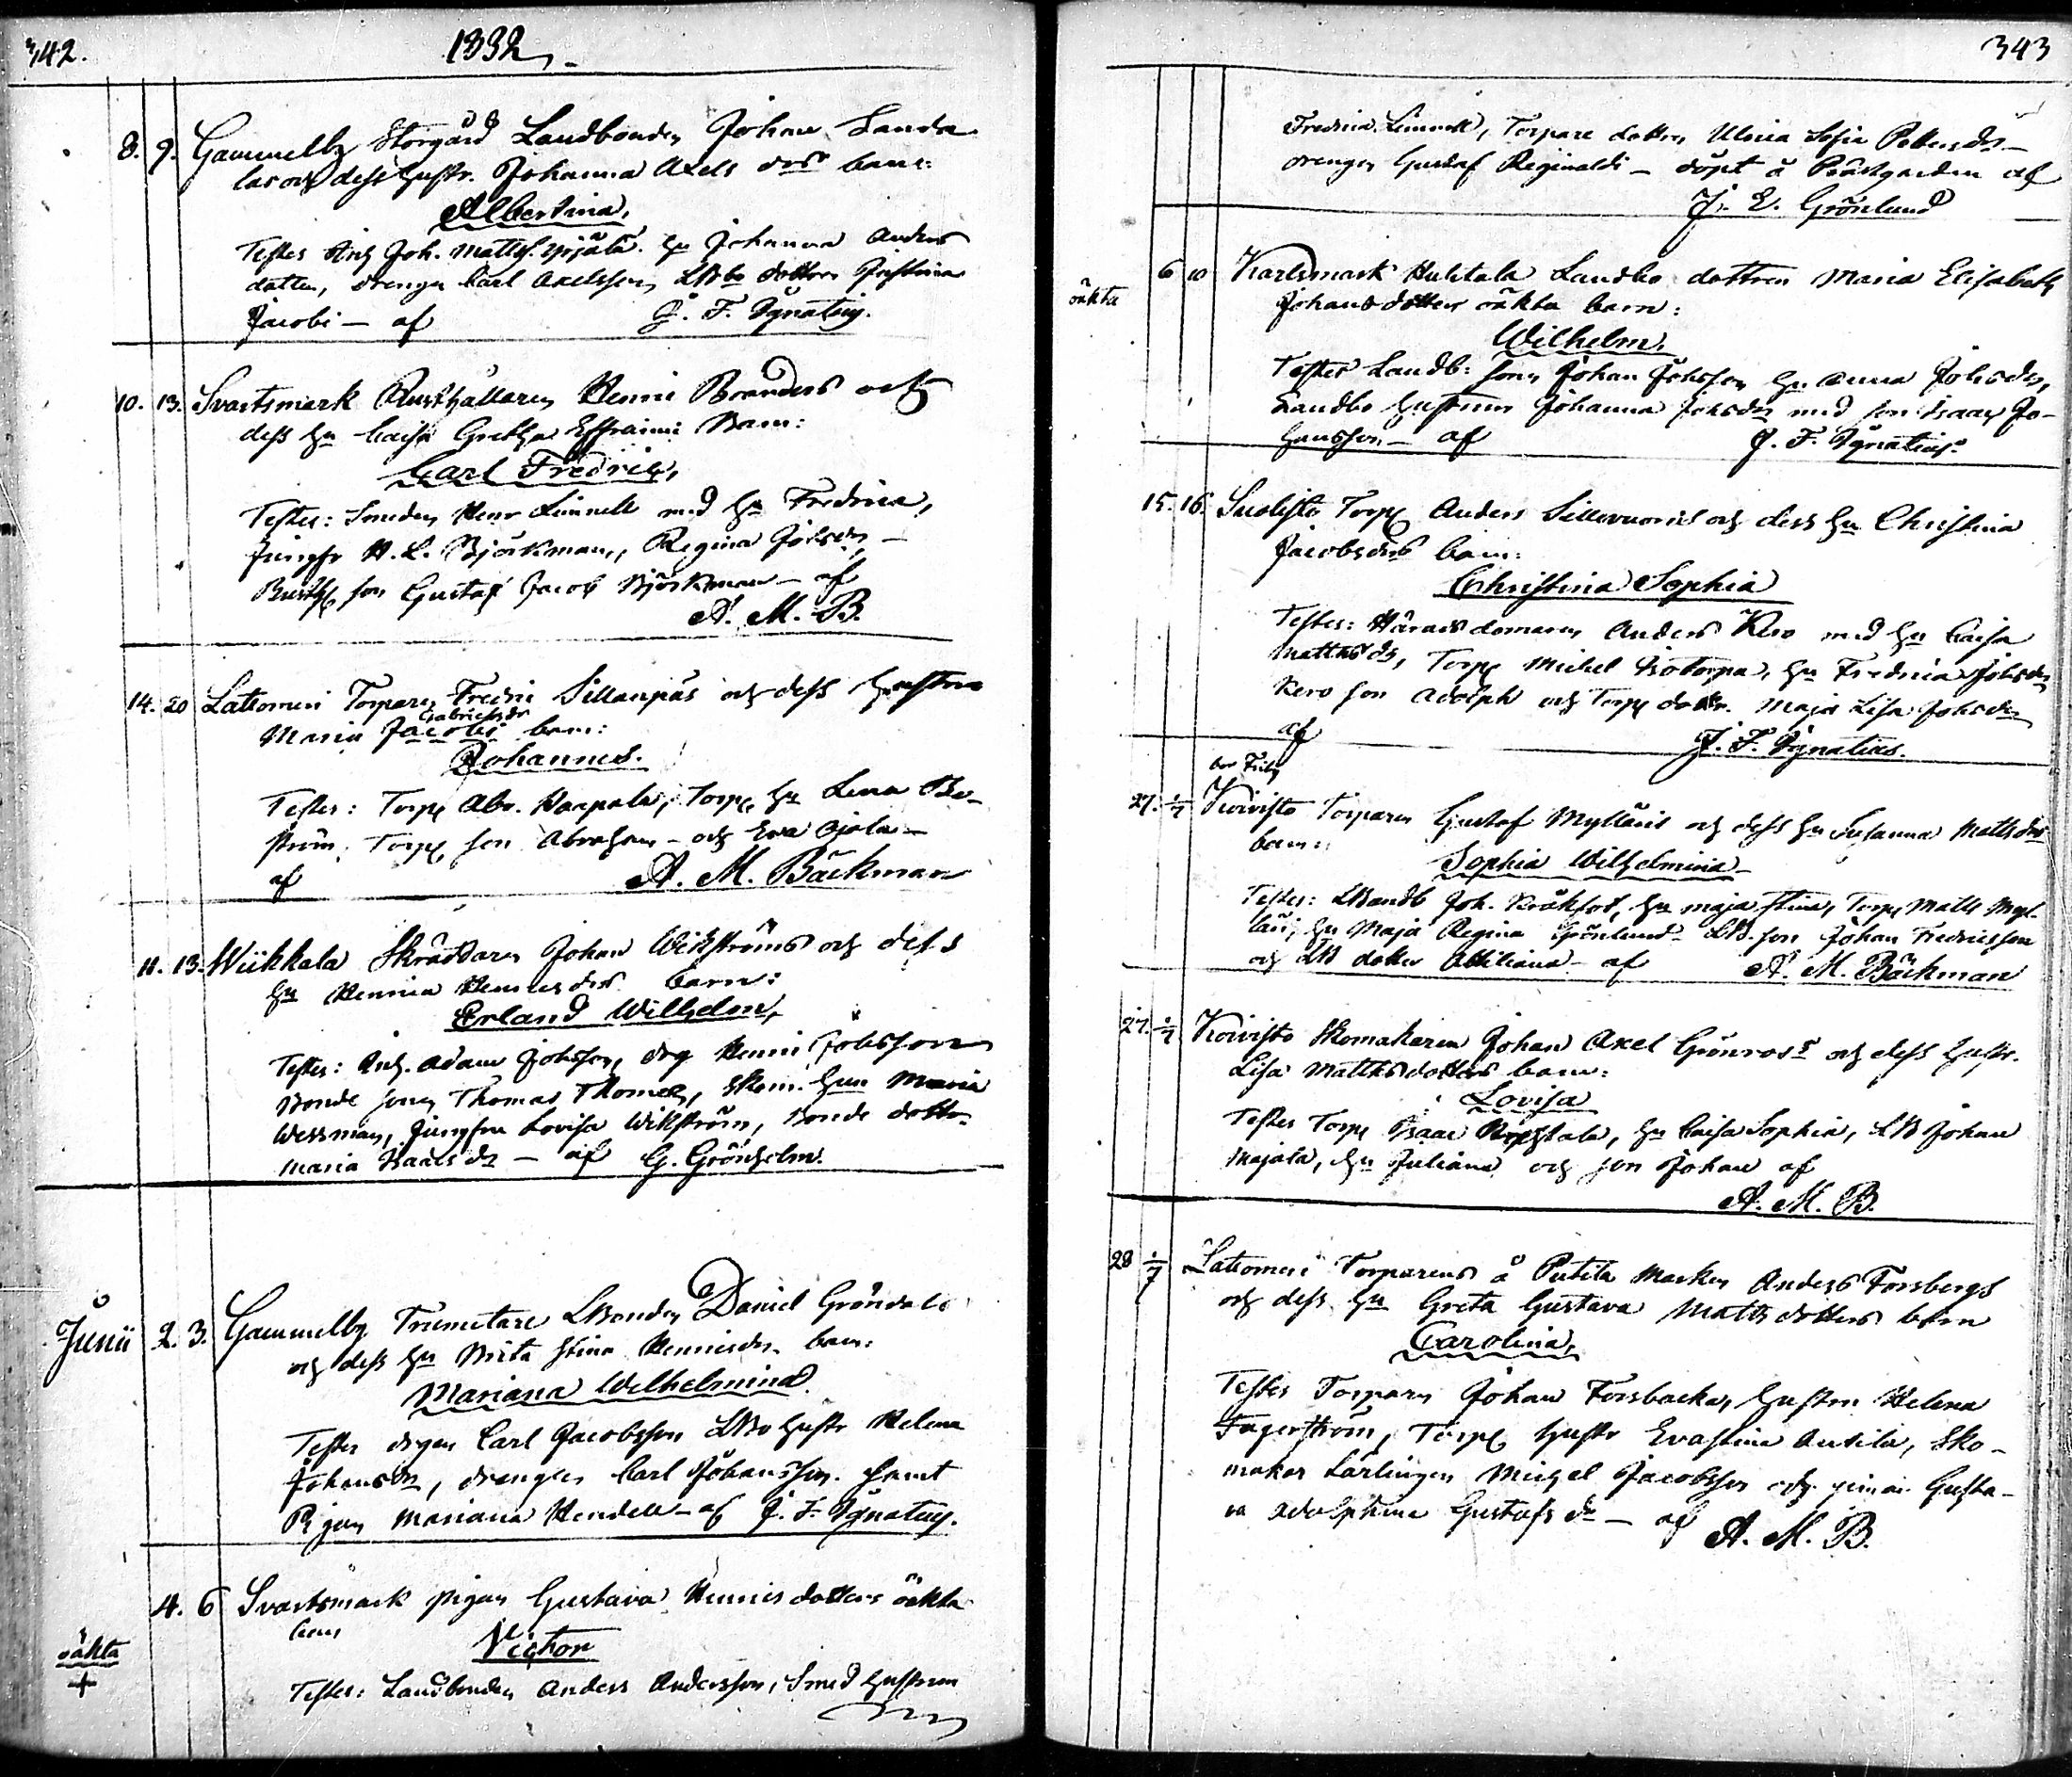 342. 1832.
8. 9. Gammelby Storgård Landbonden Johan Landa
las och dess hustr. Johanna Axels dotr barn:
Albertina,
Testes Joh. Matts. hu Johanna Anders
dotter, drengen Carl Axelsson, LBo dottren Justina
Jacobi — af J. F. Ignatius.
10. 13. Svartsmark Rusthållaren Henric Branders och
dess hu Caisa Gretha Effraimi Barn:
Carl Fredric,
Testes: Smeden Henr Linnell med hu Fredrica,
Jungfr H. L. Björkman, Regina Johsdr, —
Rusth son Gustaf Jacob Björkman — af
A. M. B.
14. 20 Lattomeri Torparen Fredric Sillanpäs och dess hustru
Gabrielsdr
Maria Jacobi barn:
Johannes.
Testes: Torp Abr. Haapala, Torp hu Lena Bo-
ström, Torp son Abraham — och Eva Ojala —
af A. M. Bäckman
11. 13. Wiikkala Skräddaren Johan Wikströms och dess
hu Henrica Henricsdrs barn:
Erland Wilhelm,
Testes: Adam Johsson, drg Henric Johsson
Bonde sonen Thomas Thomæ, Skom. hun Maria
Wessman, Jungfru Lovisa Wikström, Bonde dottr
Maria Isaacs dr — af G. Grönholm.
Junii 2. 3. Gammelby Trumetare LBonden Daniel Gröndals
och dess hu Brita Stina Henricsdrs barn:
Mariana Wilhelmina.
Testes drgen Carl Jacobsson LBo hustr Helena
Johansdr, drengen Carl Johansson samt
Pigan Mariana Hendell — af J. F. Ignatius.
4. 6 Svartsmark pigan Gustava Henrics dotters oäkta
barn
oäkta
+
Victor
Testes: Landbonden Anders Andersson, Smed hustrun
343
Fredrica Linnell, Torpare dottren Ulrica Sofia Pettersdr —
drengen Gustaf Reginaldi — döpt å Prästgården af
J. E. Grönlund
oäkta
6 10 Karlsmark Huhtala Landbo dottren Maria Elisabeth
Johansdotters oäkta barn:
Wilhelm.
Testes Landb: sonen Johan Johsson hu Anna Johsdr,
Landbo hustrun Johanna Johsdr med son Isaac Jo-
hansson — af J. F. Ignatius.
15. 16. Suolisto Torp Anders Sillervuoris och dess hu Christina
Jacobsdrs barn:
Christina Sophia
Testes: Häradsdomaren Anders Kero med hu Caisa
Mattsdr, Torp Michel Isotorpa, hu Fredrica Johsdr
Kero son Adolph och Torp dottr. Maja Lisa Johsdr
af J. F. Ignatius.
27. 1/7 Koivisto Torparen Gustaf Mylläris och dess hu Susanna Mattsdrs
barn:
Sophia Wilhelmina —
Testes: LBondb Joh. Kråkfot, hu Maja Stina, Torp Matts Myl-
läri, hu Maja Regina Grönlund LB. son Johan Fredricsson
och LB dotter Ottiliana — af A. M. Bäckman
27. 1/7 Koivisto Skomakaren Johan Axel Grönroos och dess hustr.
Lisa Mattsdotters barn:
Lovisa
Testes Torp Isaac hu Caisa Sophia, LB Johan
Majala, hu Juliana och son Johan af
A. M. B.
28 1/7 Lattomeri Torparens å Putila Marken Anders Forsbergs
och dess hu Greta Gustava Matts dotters barn
Carolina,
Testes Torparen Johan Forsbacka, hustrun Helena
Fagerström, Torp hustr Evastina Antila, Sko-
makar Lärlingen Michel Jacobsson och pigan Gusta-
va Adolphina Gustafs dr — af A. M. B.